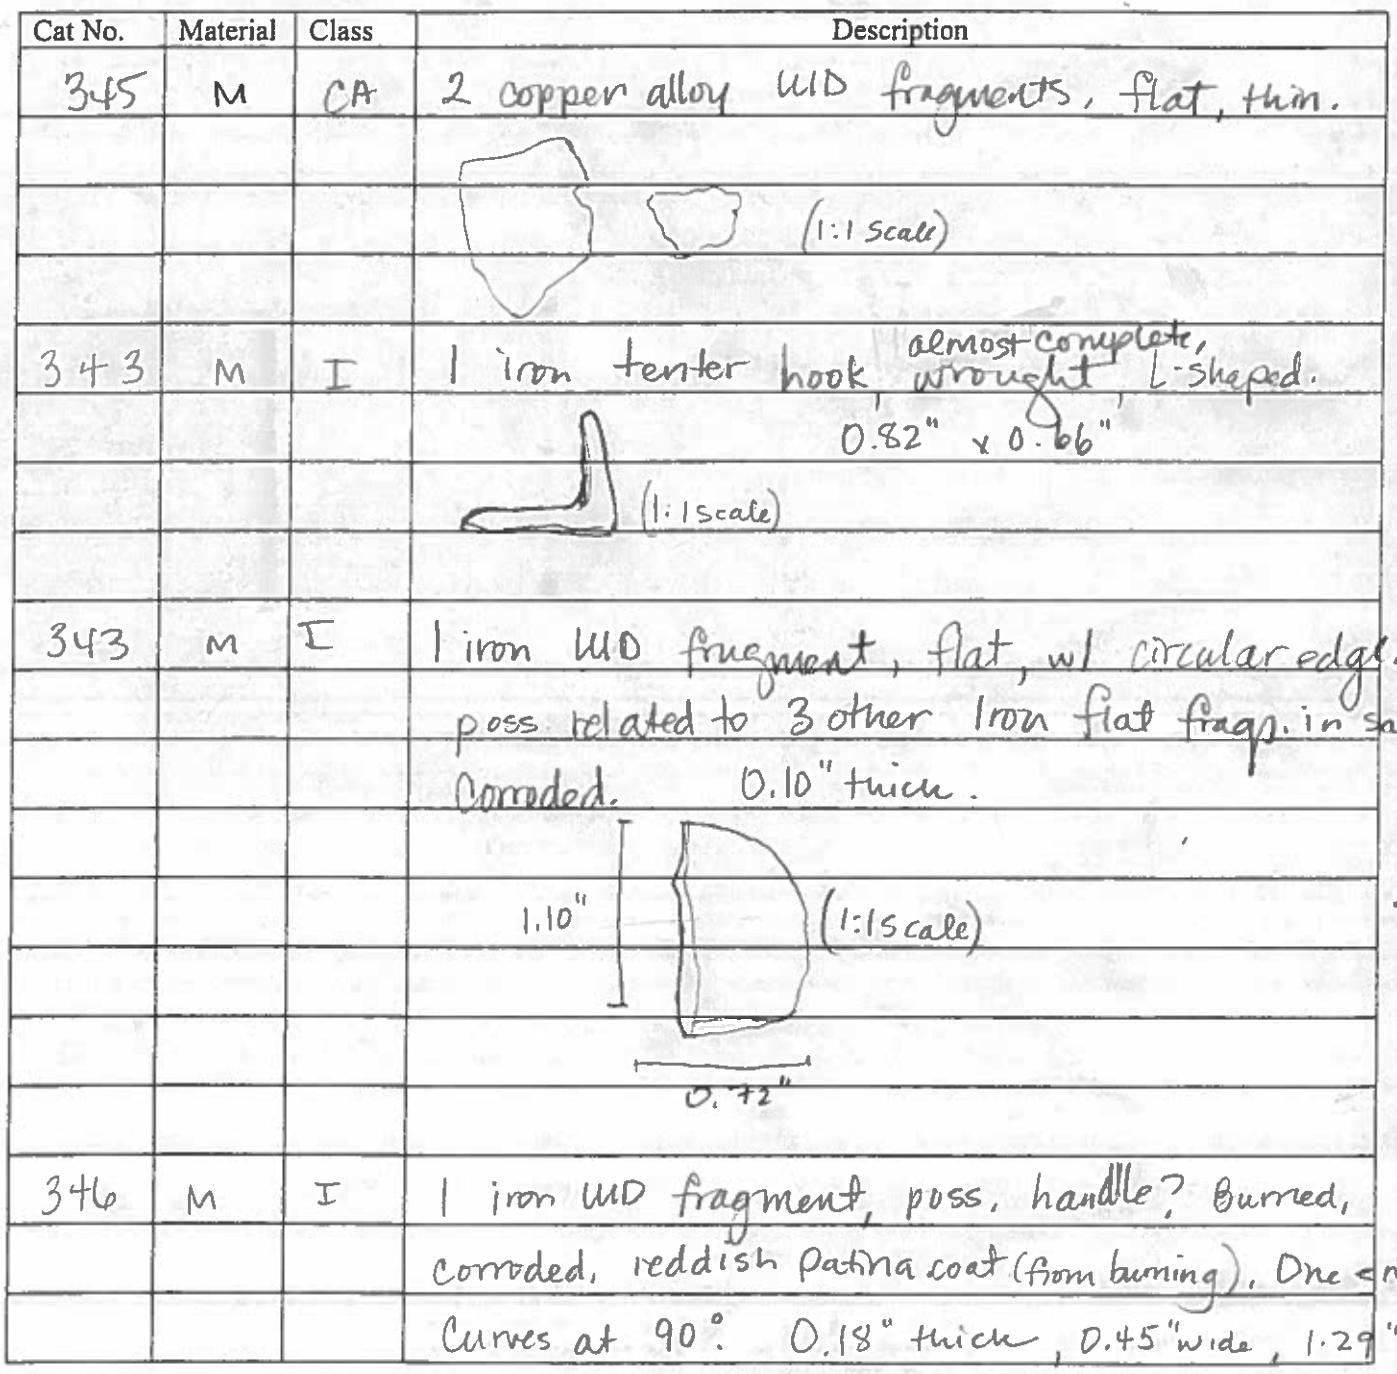 Cat No. Material Class Description
345 M CA 2 copper alloy UID fragments, flat, thin.
(1:1 Scale)
almost complete,
343 M I 1 iron tenter hook, wrought, L-shaped.
0.82" x 0.66"
(1:1 scale)
343 M I 1 iron UID fragment, flat, w/ circular edge.
poss related to 3 other Iron flat frags. in sa
Corroded. 0.10" thick.
1.10" (1:1 Scale)
0.72"
346 M I 1 iron UID fragment, poss. handle? Burned,
corroded, reddish Patina coat (from burning). One en
Curves at 90°. 0.18" thick, 0.45" wide, 1.29"